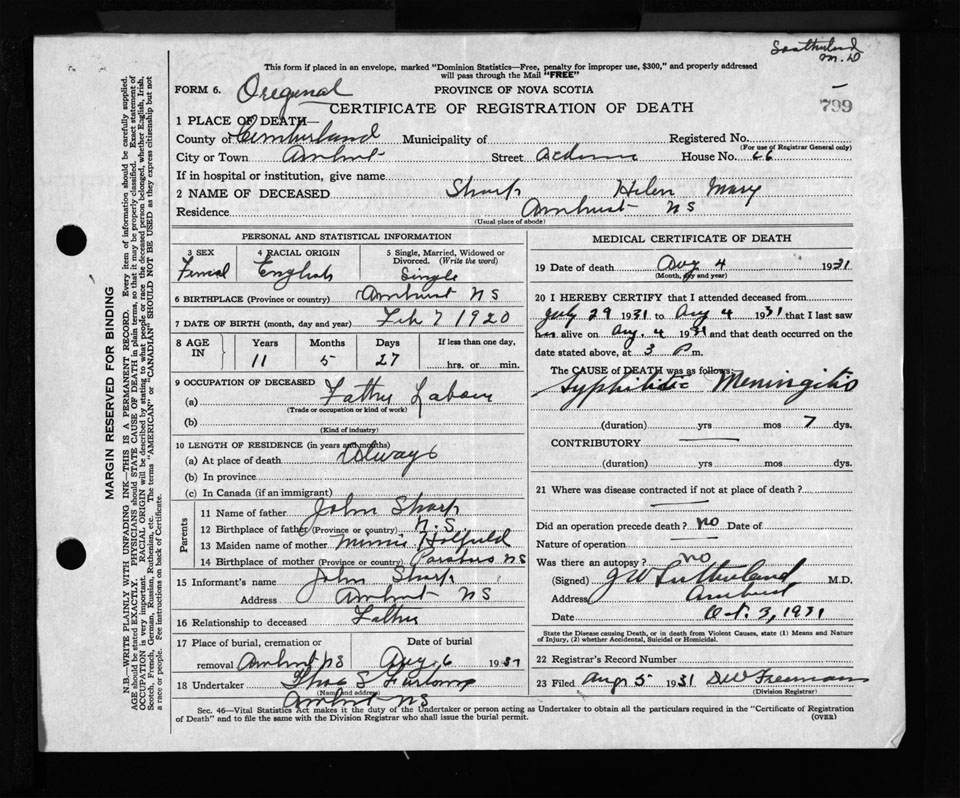 Southerland
M.D
This form if placed in an envelope, marked "Dominion Statistics—Free, penalty for improper use, $300," and properly addressed
will pass through the Mail "FREE"
FORM 6.
Oregunal
PROVINCE OF NOVA SCOTIA
CERTIFICATE OF REGISTRATION OF DEATH
799
1 PLACE OF DEATH—
County of Cumberland Municipality of Registered No.
(For use of Registrar General only)
City or Town Amhrst Street House No. 66
If in hospital or institution, give name
2 NAME OF DECEASED Sharp Helen Mary
Residence Amhurst NS
(Usual place of abode)
PERSONAL AND STATISTICAL INFORMATION
3 SEX 4 RACIAL ORIGIN 5 Single, Married, Widowed or
Divorced. (Write the word)
Femal English Single
6 BIRTHPLACE (Province or country) Amhurst NS
7 DATE OF BIRTH (month, day and year) Feb 7 1920
8 AGE IN Years Months Days If less than one day,
11 5 27 hrs. or min.
9 OCCUPATION OF DECEASED
(a) Father Labour
(Trade or occupation or kind of work)
(b)
(Kind of industry)
10 LENGTH OF RESIDENCE (in years and months)
(a) At place of death Always
(b) In province
(c) In Canada (if an immigrant)
Parents
11 Name of father John Sharp
12 Birthplace of father (Province or country) N.S.
13 Maiden name of mother Minnie
14 Birthplace of mother (Province or country) NS
15 Informant's name John Sharp
Address Amhrst NS
16 Relationship to deceased Father
17 Place of burial, cremation or Date of burial
removal Amhrst NS Aug 6 1931
18 Undertaker
(Name and address)
Amhrst NS
MEDICAL CERTIFICATE OF DEATH
19 Date of death Aug 4 1931
(Month, day and year)
20 I HEREBY CERTIFY that I attended deceased from
July 29 1931 to Aug 4 1931 that I last saw
her alive on Aug. 4 1931 and that death occurred on the
date stated above, at 3 P m.
The CAUSE of DEATH was as follows:
Syphilitic Meningitis
(duration) yrs mos 7 dys.
CONTRIBUTORY
(duration) yrs mos dys.
21 Where was disease contracted if not at place of death?
Did an operation precede death? no Date of
Nature of operation
Was there an autopsy? no
(Signed) J W Sutherland M.D.
Address Amhurst
Date Oct. 3, 1931
State the Disease causing Death, or in death from Violent Causes, state (1) Means and Nature
of Injury, (2) whether Accidental, Suicidal or Homicidal.
22 Registrar's Record Number
23 Filed Aug 5 1931 DW Freeman
(Division Registrar)
Sec. 46—Vital Statistics Act makes it the duty of the Undertaker or person acting as Undertaker to obtain all the particulars required in the "Certificate of Registration
of Death" and to file the same with the Division Registrar who shall issue the burial permit.
(OVER)
MARGIN RESERVED FOR BINDING
N.B.—WRITE PLAINLY WITH UNFADING INK—THIS IS A PERMANENT RECORD. Every item of information should be carefully supplied.
AGE should be stated EXACTLY. PHYSICIANS should STATE CAUSE OF DEATH in plain terms, so that it may be properly classified. Exact statement of
OCCUPATION is very important. RACIAL ORIGIN will be described by stating what people or race the deceased person belonged, whether English, Irish,
Scotch, French, German, Russian, Ruthenian, etc. The terms "AMERICAN" or "CANADIAN" SHOULD NOT BE USED as they express citizenship but not
a race or people. See instructions on back of Certificate.